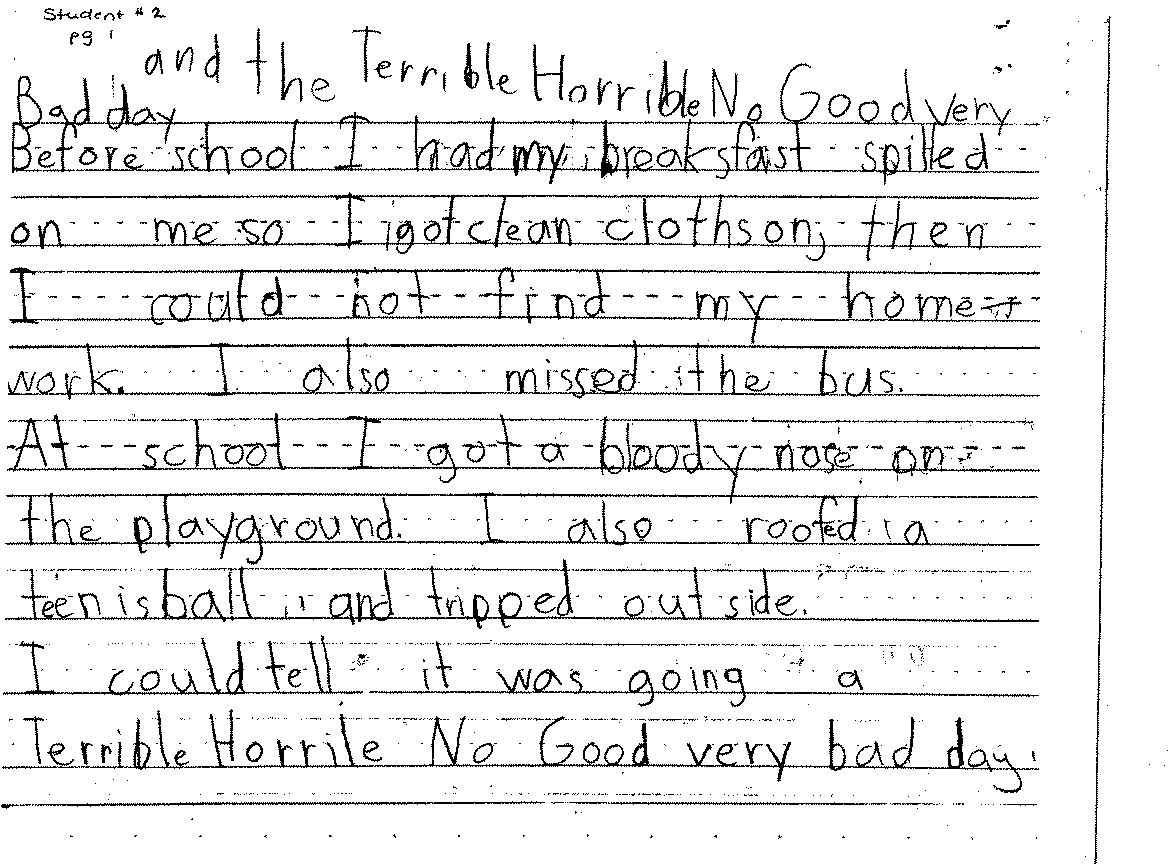 Student #2
pg 1
and the Terrible Horrible No Good very
Bad day
Before school I had my breaksfast spilled
on me so I got clean cloths on, then
I could not find my home
work. I also missed the bus.
At school I got a bloody nose on
the playground. I also roofed a
teenisball and tripped out side.
I could tell it was going a
Terrible Horrile No Good very bad day.